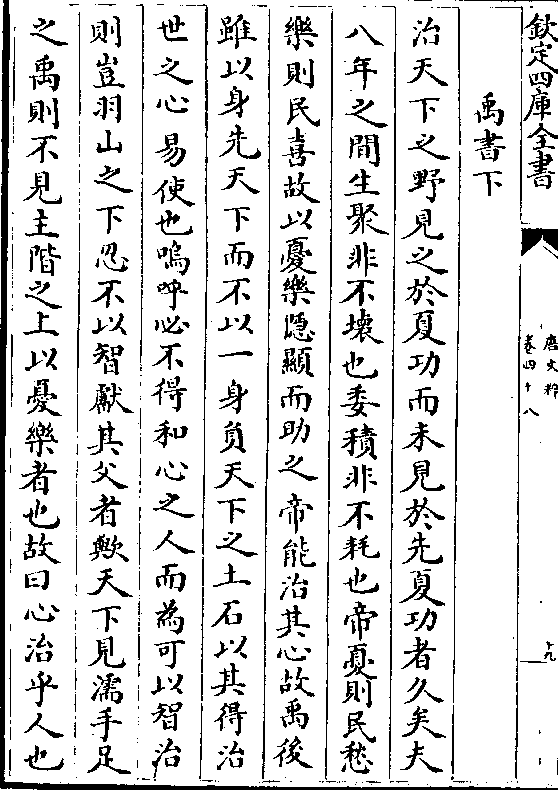 欽定四庫全書
唐文粹
卷四十八
十九
禹書下
治天下之野見之於夏功而未見於先夏功者久矣夫
八年之間生聚非不壞也委積非不耗也帝憂則民愁
樂則民喜故以憂樂隱顯而助之帝能治其心故禹後
雖以身先天下而不以一身負天下之土石以其得治
世之心易使也嗚呼必不得和心之人而為可以智治
則豈羽山之下忍不以智獻其父者歟天下見濡手足
之禹則不見主階之上以憂樂者也故曰心治乎人也